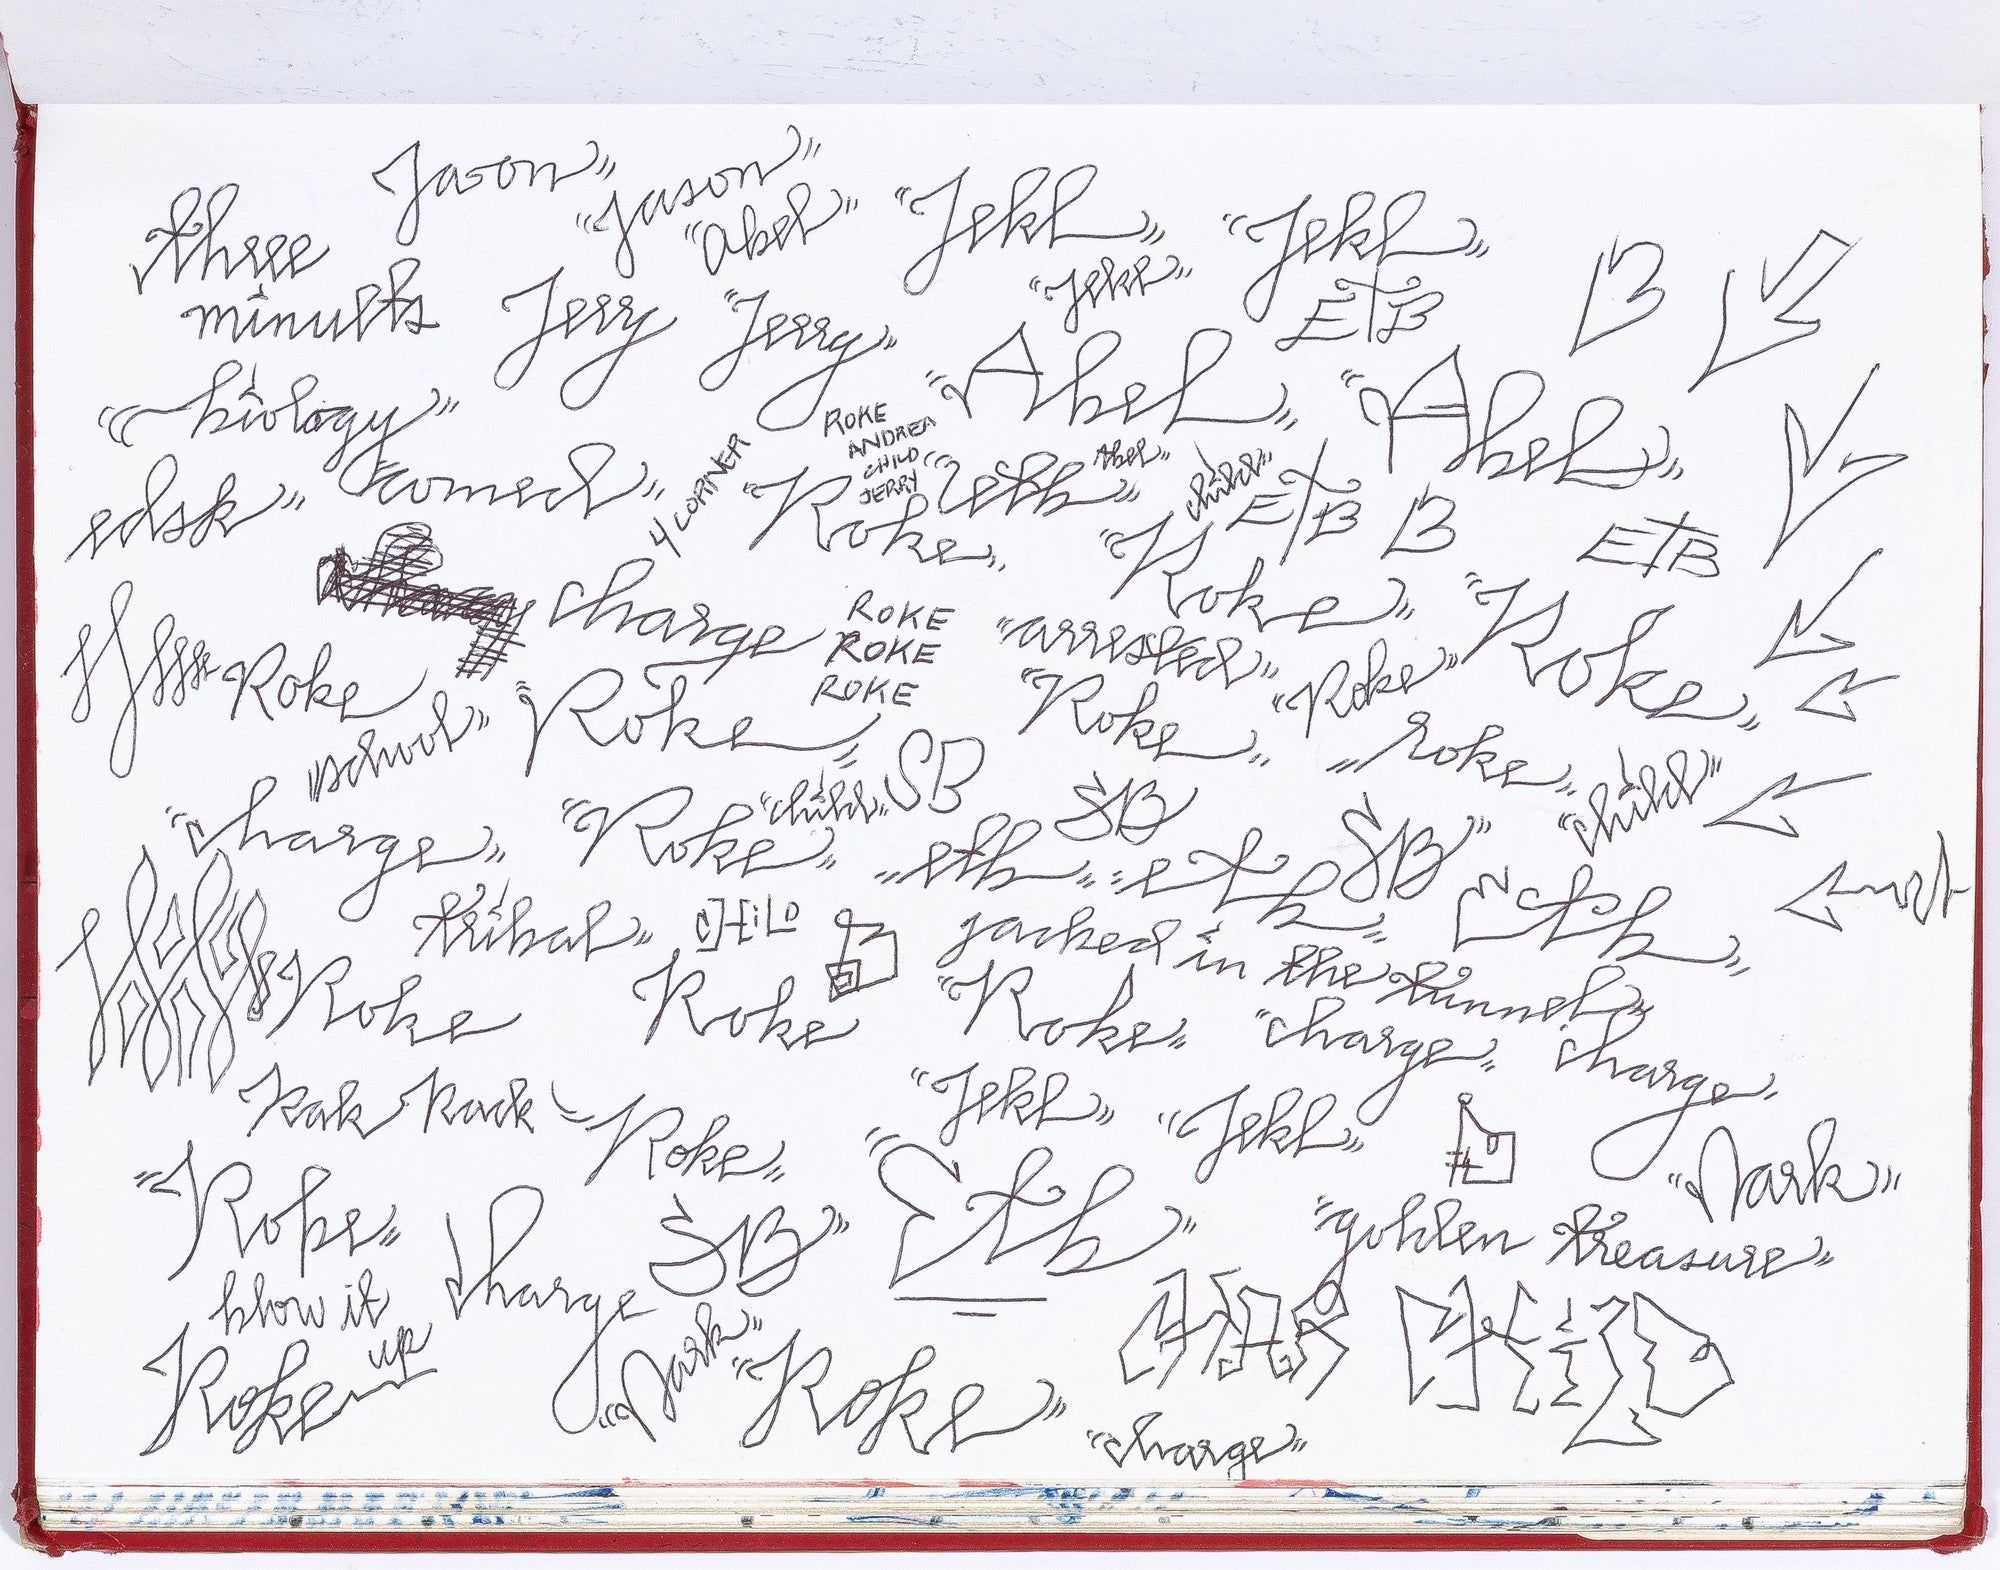 Jason"
"Jason"
three
minutes
"Abel"
"Jekl"
"Jekl"
"Jeke"
ETB
B
Jerry
"Jerry"
"biology"
"Abel"
"Abel"
ROKE
ANDREA
CHILD
JERRY
4 CORNER
edsk"
"comed"
"Roke"
"eth"
Abel"
"child"
ETB
B
ETB
charge
ROKE
ROKE
ROKE
"Roke"
"arrested"
"Roke"
"Roke"
Roke
"school"
"Roke"
"Roke"
"roke"
"charge"
"Roke"
"child"
SB
SB
SB"
"child"
"eth"
"eth"
"Eth"
"tribal"
CHiLD
jacked in the tunnel"
Roke
Roke
"Roke"
"charge"
charge"
kak
Kack
"Roke"
"Jekl"
"Jekl"
"Roke"
charge
SB"
"Eth"
"golden treasure"
"Nark"
blow it
up
Roke
"Nark"
"Roke"
"charge"
CHILD